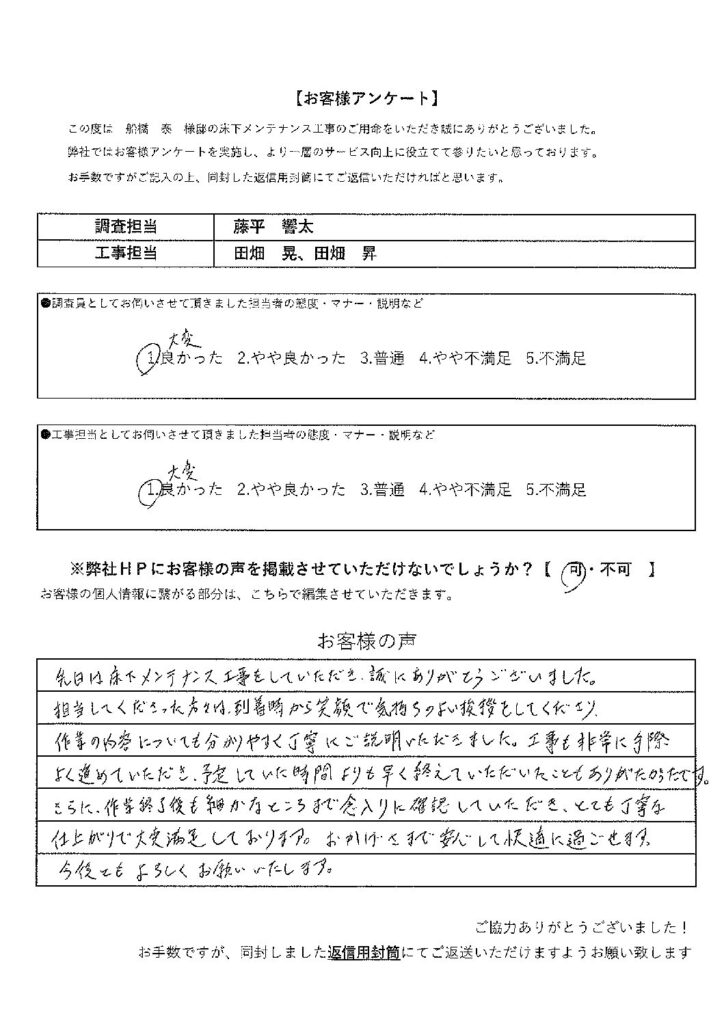 【お客様アンケート】
この度は 船橋 泰 様邸の床下メンテナンス工事のご用命をいただき誠にありがとうございました。
弊社ではお客様アンケートを実施し、より一層のサービス向上に役立てて参りたいと思っております。
お手数ですがご記入の上、同封した返信用封筒にてご返信いただければと思います。
調査担当 藤平 響太
工事担当 田畑 晃、田畑 昇
●調査員としてお伺いさせて頂きました担当者の態度・マナー・説明など
大変
1.良かった 2.やや良かった 3.普通 4.やや不満足 5.不満足
●工事担当としてお伺いさせて頂きました担当者の態度・マナー・説明など
大変
1.良かった 2.やや良かった 3.普通 4.やや不満足 5.不満足
※弊社HPにお客様の声を掲載させていただけないでしょうか?【 可・不可 】
お客様の個人情報に繋がる部分は、こちらで編集させていただきます。
お客様の声
先日は床下メンテナンス工事をしていただき、誠にありがとうございました。
担当してくださった方々は、到着時から笑顔で気持ちのよい挨拶をしてくださり、
作業の内容についても分かりやすく丁寧にご説明いただきました。工事も非常に手際
よく進めていただき、予定していた時間よりも早く終えていただいたこともありがたかったです。
さらに、作業終了後も細かなところまで念入りに確認していただき、とても丁寧な
仕上がりで大変満足しております。おかげさまで安心して快適に過ごせます。
今後ともよろしくお願いいたします。
ご協力ありがとうございました!
お手数ですが、同封しました返信用封筒にてご返送いただけますようお願い致します